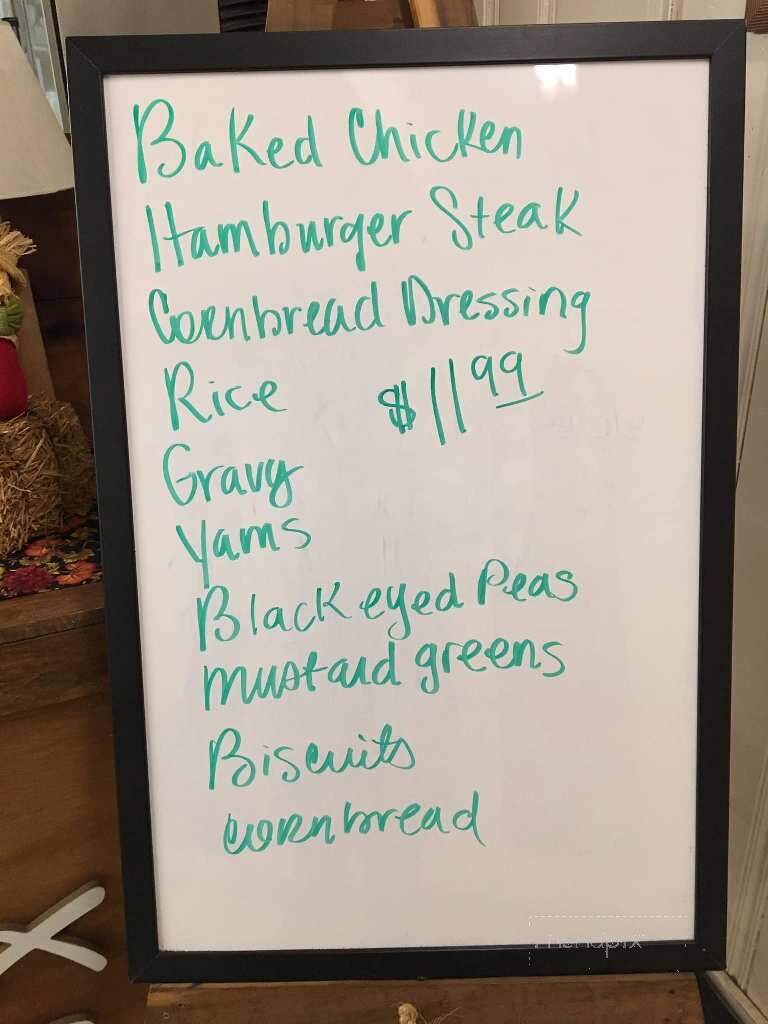 Baked Chicken
Hamburger Steak
Cornbread Dressing
Rice $11 99
Gravy
Yams
Black eyed Peas
mustard greens
Biscuits
cornbread
menupix